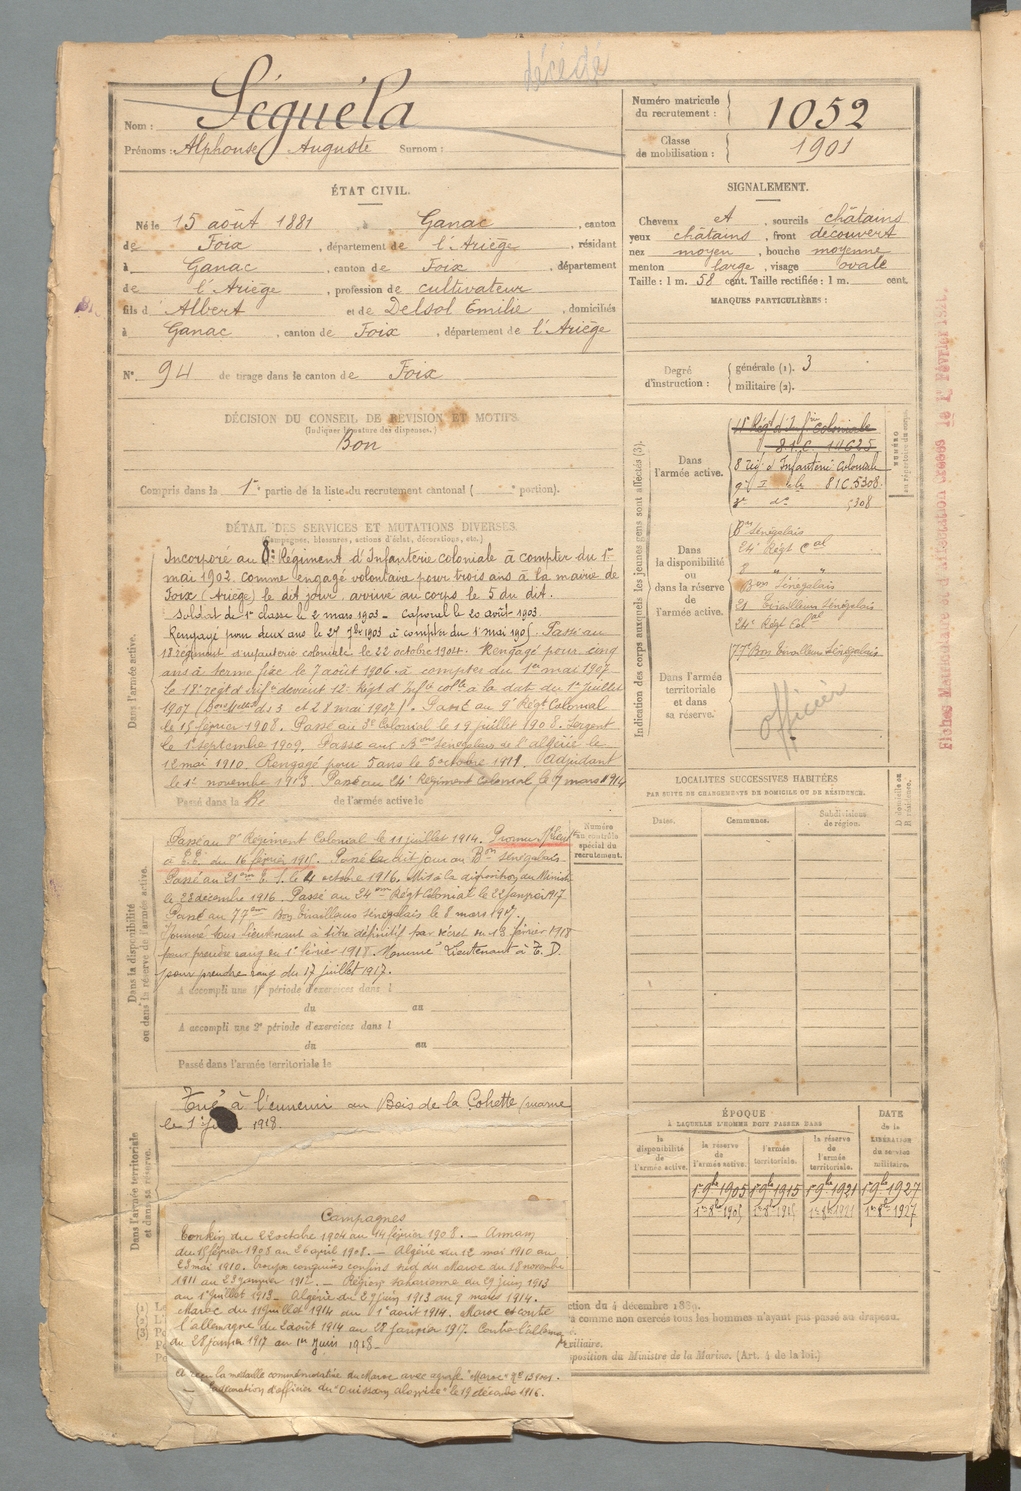 décédé
Nom : Séguéla
Prénoms : Alphonse Auguste Surnom :
Numéro matricule du recrutement : 1052
Classe de mobilisation : 1901
ÉTAT CIVIL.
Né le 15 août 1881, à Ganac, canton
de Foix, département de l'Ariège, résidant
à Ganac, canton de Foix, département
de l'Ariège, profession de cultivateur
fils d'Albert et de Delsol Emilie, domiciliés
à Ganac, canton de Foix, département de l'Ariège
N° 94 de tirage dans le canton de Foix
SIGNALEMENT.
Cheveux et, sourcils châtains
yeux châtains, front découvert
nez moyen, bouche moyenne
menton large, visage ovale
Taille : 1 m. 58 cent. Taille rectifiée : 1 m. cent.
MARQUES PARTICULIÈRES :
Degré d'instruction : générale (1). 3
militaire (2).
DÉCISION DU CONSEIL DE RÉVISION ET MOTIFS.
(Indiquer la nature des dispenses.)
Bon
Compris dans la 1re partie de la liste du recrutement cantonal ( e portion).
DÉTAIL DES SERVICES ET MUTATIONS DIVERSES.
(Campagnes, blessures, actions d'éclat, décorations, etc.)
Dans l'armée active.
Incorporé au 8e Régiment d'Infanterie coloniale à compter du 1er
mai 1902 comme engagé volontaire pour trois ans à la mairie de
Foix (Ariège) le dit jour arrivé au corps le 5 du dit.
Soldat de 1re classe le 2 mars 1903 - Caporal le 20 août 1903.
Rengagé pour deux ans le 1903 à compter du 1 mai 1905. Passé au
18 régiment d'infanterie coloniale le 22 octobre 1904. Rengagé pour cinq
ans à terme fixe le 7 août 1906 à compter du 1er mai 1907
le 18e regt d'infie devient 12e Regt d'Infie colle à la date du 1er juillet
1907 ( des 3 et 28 mai 1907). Passé au 9e Régt Colonial
le 15 février 1908. Passé au 3e Colonial le 19 juillet 1908. Sergent
le 1 septembre 1909. Passé aux Bons Sénégalais de l'algérie le
12 mai 1910. Rengagé pour 5 ans le 5 octobre 1911. Adjudant
le 1er novembre 1913. Passé au 24e Régiment Colonial le 7 mars 1914
Passé dans la Re de l'armée active le
Dans la disponibilité ou dans la réserve de l'armée active.
Passé au 8e Régiment Colonial le 11 juillet 1914. Promu s/Lieut
à T.T. du 16 février 1915. Passé le dit jour au Bon Sénégalais
Passé au 21em T. S. le 4 octobre 1916. Mis à la disposition du Minist
le 23 décembre 1916. Passé au 24em Régt Colonial le 22 janvier 1917
Passé au 77em Bon Tirailleurs Sénégalais le 8 mars 1917.
Nommé sous Lieutenant à titre définitif par décret du 13 février 1918
pour prendre rang du 1er février 1918. Nommé Lieutenant à T. D.
pour prendre rang du 17 juillet 1917.
A accompli une 1re période d'exercices dans l
du au
A accompli une 2e période d'exercices dans l
du au
Passé dans l'armée territoriale le
Numéro au contrôle spécial du recrutement.
Dans l'armée territoriale et dans sa réserve.
Tué à l'ennemi au Bois de la Cohette (marne
le 1er 1918.
Campagnes
Tonkin du 22 octobre 1904 au 14 février 1908. - Annam
du 15 février 1908 au 26 april 1908. - Algérie du 12 mai 1910 au
23 mai 1910. Troupes conquises confins sud du Maroc du 18 novembre
1911 au 23 janvier 1912. - Région saharienne du 29 juin 1913
au 1er juillet 1913 - Algérie du 2 juin 1913 au 9 mars 1914.
Maroc du 11 juillet 1914 au 1er août 1914. Maroc et contre
l'allemagne du 2 août 1914 au 28 janvier 1917. Contre l'allemag
du 28 janvier 1917 au 1er juin 1918 -
A reçu la médaille commémorative du Maroc avec agrafe "Maroc"
- décoration d'officier du "Ouissam alaouite" le 19 décembre 1916.
Indication des corps auxquels les jeunes gens sont affectés (3).
Dans l'armée active.
18 Régt d'Infie coloniale
81C 14625
8 rég. d'Infanterie Coloniale
81C5308
3e do 5308
NUMÉRO au répertoire du corps.
Dans la disponibilité ou dans la réserve de l'armée active.
Bon Sénégalais
24e Régt Cal
8 " "
Bon Sénégalais
21 Tirailleurs Sénégalais
24e Régt Cal
77e Bon Tirailleurs Sénégalais
Dans l'armée territoriale et dans sa réserve.
officier
LOCALITÉS SUCCESSIVES HABITÉES
PAR SUITE DE CHANGEMENTS DE DOMICILE OU DE RÉSIDENCE.
Dates. Communes. Subdivisions de région.
D domicile ou R résidence.
ÉPOQUE
À LAQUELLE L'HOMME DOIT PASSER DANS
DATE de la LIBÉRATION du service militaire.
la disponibilité de l'armée active. la réserve de l'armée active. l'armée territoriale. la réserve de l'armée territoriale.
1er 9bre 1905 1er 9bre 1915 1er 9bre 1921 1er 9bre 1927
1er 8bre 1905 1er 8bre 1915 1er 8bre 1921 1er 8bre 1927
ction du 4 décembre 1889.
à comme non exercés tous les hommes n'ayant pas passé au drapeau.
xiliaire.
sposition du Ministre de la Marine. (Art. 4 de la loi.)
Fiches Matriculaire et d'affectation créées le 1er Février 1921.